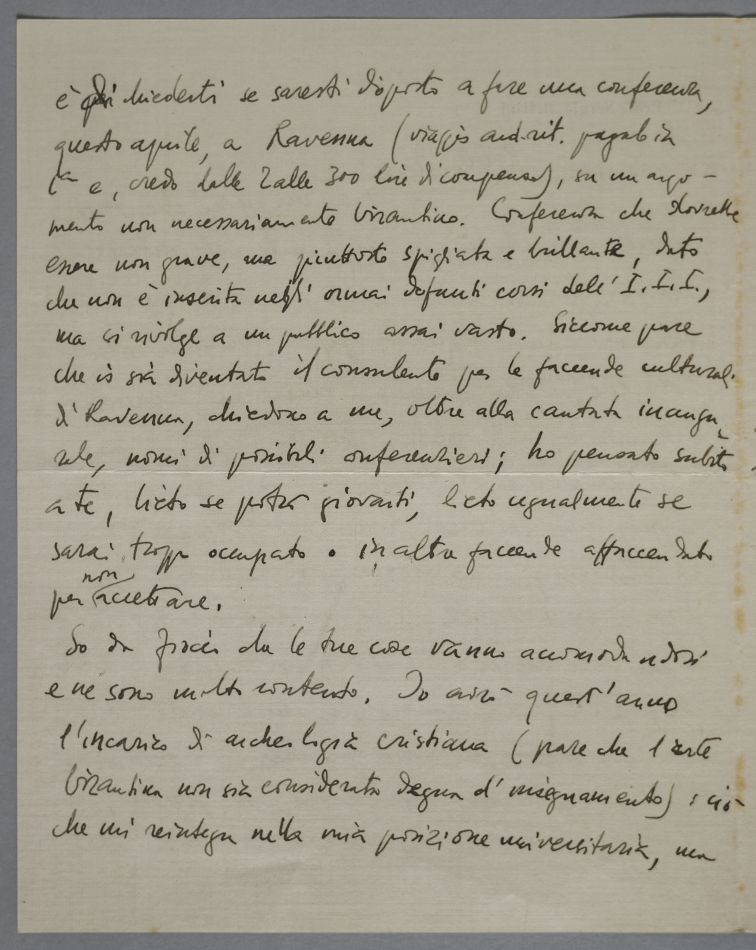 è chiederti se saresti disposto a fare una conferenza,
questo aprile, a Ravenna (viaggio and.rit. pagato in
e, credo dalle 2 alle 300 lire di compenso), su un argo-
mento non necessariamente bizantino. Conferenza che dovrebbe
essere non grave, ma piuttosto spigliata e brillante, dato
che non è inserita negli ormai defunti corsi dell'I.I.I.,
ma si rivolge a un pubblico assai vasto. Siccome pare
che io sia diventato il consulente per le faccende culturali
di Ravenna, chiedono a me, oltre alla cantata inaugu-
rale, nomi di possibili conferenzieri; ho pensato subito
a te, lieto se potrà giovarti, lieto ugualmente se
sarai troppo occupato o in altre faccende affaccendato
per non accettare.
So da che le tue cose vanno accomodandosi
e ne sono molto contento. Io avrò quest'anno
l'incarico di archeologia cristiana (pare che l'arte
bizantina non sia considerata degna d'insegnamento): ciò
che mi reintegra nella mia posizione universitaria, ma